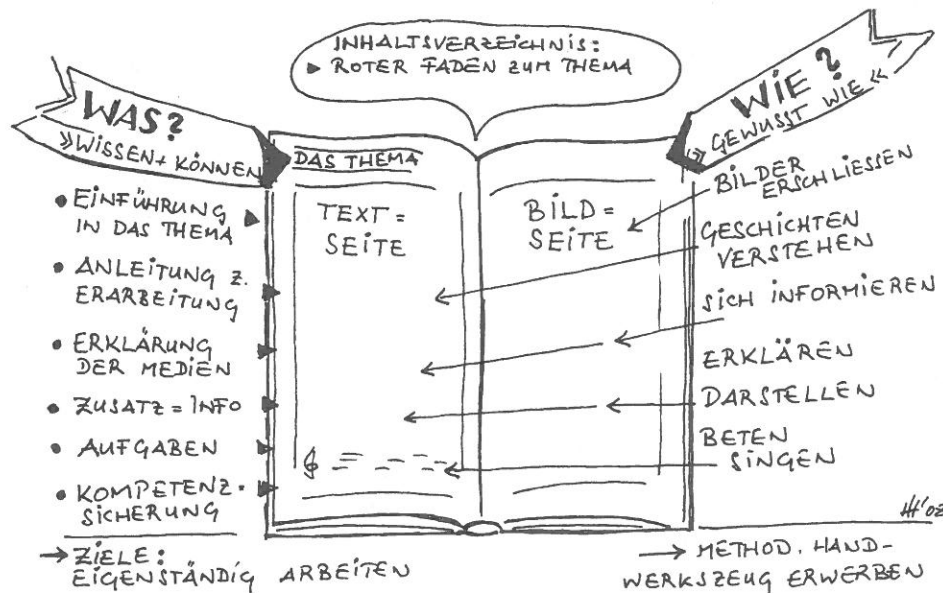 INHALTSVERZEICHNIS:
► ROTER FADEN ZUM THEMA
WAS?
»WISSEN + KÖNNEN
WIE?
»GEWUSST WIE«
DAS THEMA
TEXT=
SEITE
BILD=
SEITE
• EINFÜHRUNG
IN DAS THEMA
• ANLEITUNG Z.
ERARBEITUNG
• ERKLÄRUNG
DER MEDIEN
• ZUSATZ=INFO
• AUFGABEN
• KOMPETENZ-
SICHERUNG
→ ZIELE:
EIGENSTÄNDIG ARBEITEN
BILDER
ERSCHLIESSEN
GESCHICHTEN
VERSTEHEN
SICH INFORMIEREN
ERKLÄREN
DARSTELLEN
BETEN
SINGEN
→ METHOD. HAND-
WERKSZEUG ERWERBEN